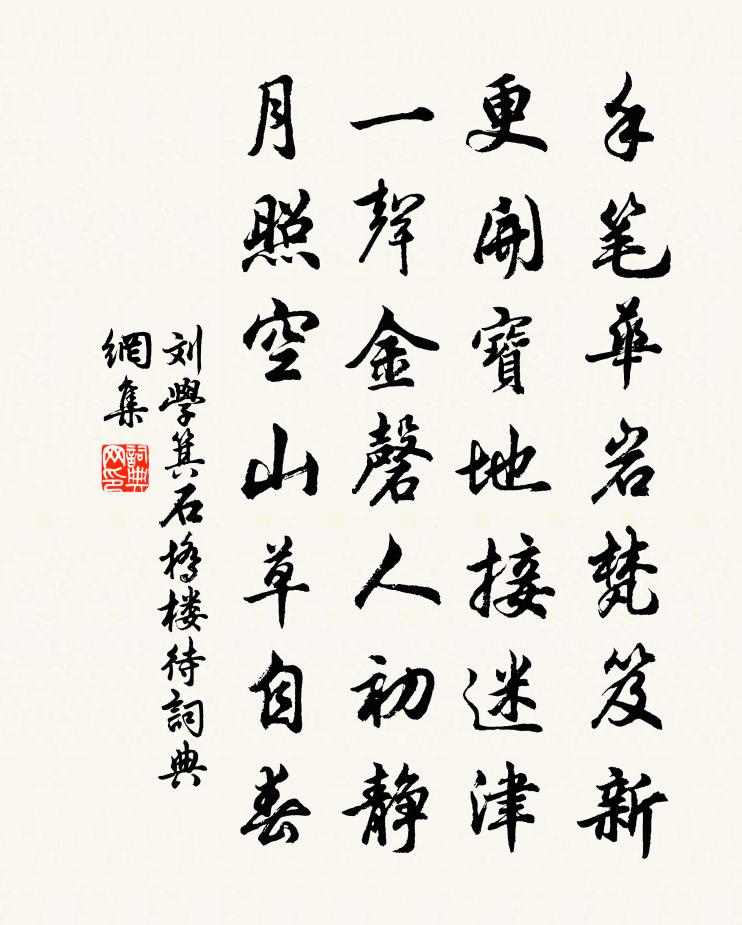 手笔華岩梵笈新
更開寶地接迷津
一聲金磬人初静
月照空山草自春
刘學箕石橋楼待詞典
網集
詞典
网印